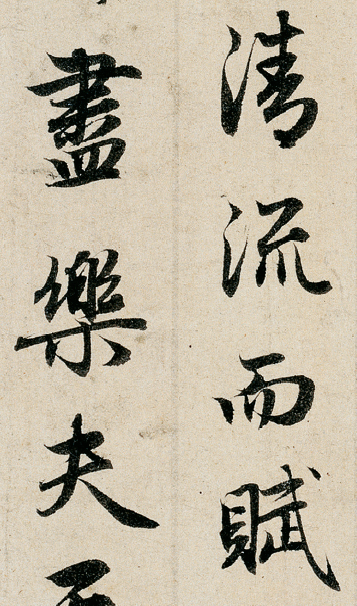 清流而賦
盡樂夫